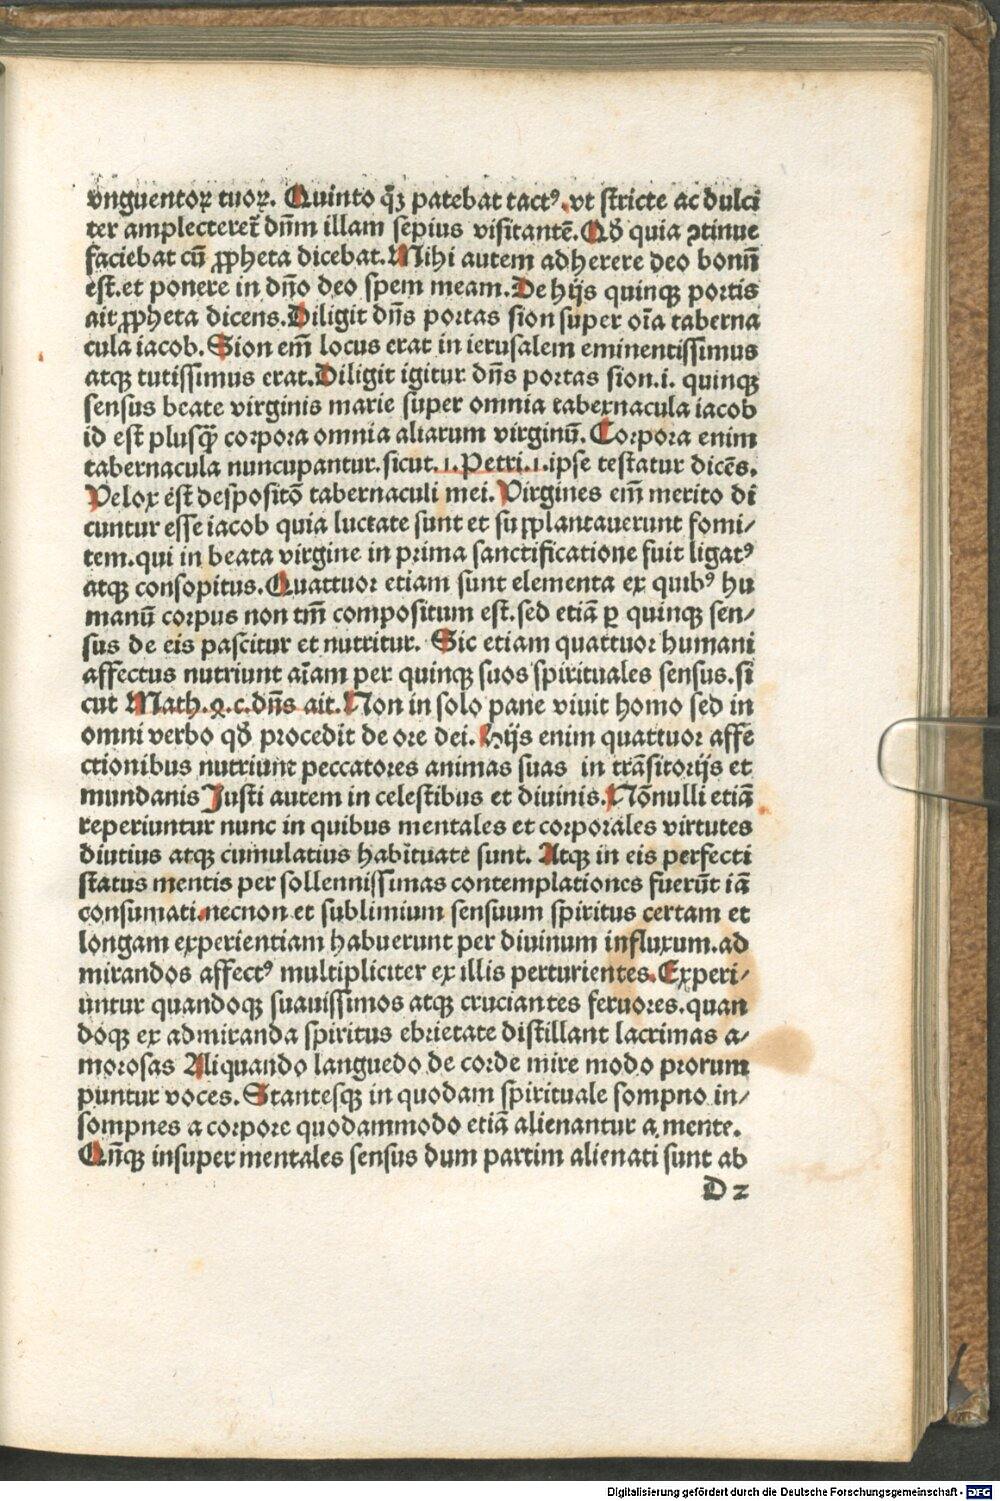 vnguentoꝝ tuoꝝ. Quinto qͥꝫ patebat tactꝰ. vt stricte ac dulci
ter amplectereť dn̄m illam sepius visitantē. Qd̄ quia ꝯtinue
faciebat cū ꝓpheta dicebat. Mihi autem adherere deo bonū
est. et ponere in dn̄o deo spem meam. De hijs quinqꝫ portis
ait ꝓpheta dicens. Diligit dn̄s portas sion super oīa taberna
cula iacob. Sion em̄ locus erat in ierusalem eminentissimus
atqꝫ tutissimus erat. Diligit igitur dn̄s portas sion .i. quinqꝫ
sensus beate virginis marie super omnia tabernacula iacob
id est plusqꝫ̄ corpora omnia aliarum virginū. Corpora enim
tabernacula nuncupantur. sicut .1. Petri .1. ipse testatur dicēs.
Velox est despositō tabernaculi mei. Virgines em̄ merito di
cuntur esse iacob quia luctate sunt et supplantauerunt fomi/
tem. qui in beata virgine in prima sanctificatione fuit ligatꝰ
atqꝫ consopitus. Quattuor etiam sunt elementa ex quibꝰ hu
manū corpus non tm̄ compositum est. sed etiā ꝑ quinqꝫ sen/
sus de eis pascitur et nutritur. Sic etiam quattuor humani
affectus nutriunt aīam per quinqꝫ suos spirituales sensus. si
cut Math. 4. c. dn̄s ait. Non in solo pane viuit homo sed in
omni verbo qd̄ procedit de ore dei. Hijs enim quattuor affe
ctionibus nutriunt peccatores animas suas in trāsitorijs et
mundanis Justi autem in celestibus et diuinis. Nōnulli etiā
reperiuntur nunc in quibus mentales et corporales virtutes
diutius atqꝫ cumulatius habituate sunt. Atqꝫ in eis perfecti
status mentis per sollennissimas contemplationes fuerūt iā
consumati. necnon et sublimium sensuum spiritus certam et
longam experientiam habuerunt per diuinum influxum. ad
mirandos affectꝰ multipliciter ex illis perturientes. Experi/
untur quandoqꝫ suauissimos atqꝫ cruciantes feruores. quan
doqꝫ ex admiranda spiritus ebrietate distillant lacrimas a/
morosas Aliquando languedo de corde mire modo prorum
puntur voces. Stantesqꝫ in quodam spirituale sompno in/
sompnes a corpore quodammodo etiā alienantur a mente.
Qn̄qꝫ insuper mentales sensus dum partim alienati sunt ab
D 2
Digitalisierung gefördert durch die Deutsche Forschungsgemeinschaft - DFG